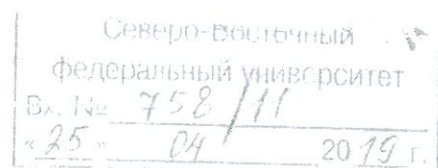 Северо-Восточный
федеральный университет
Вх. № 758/11
«25» 04 2019 г.